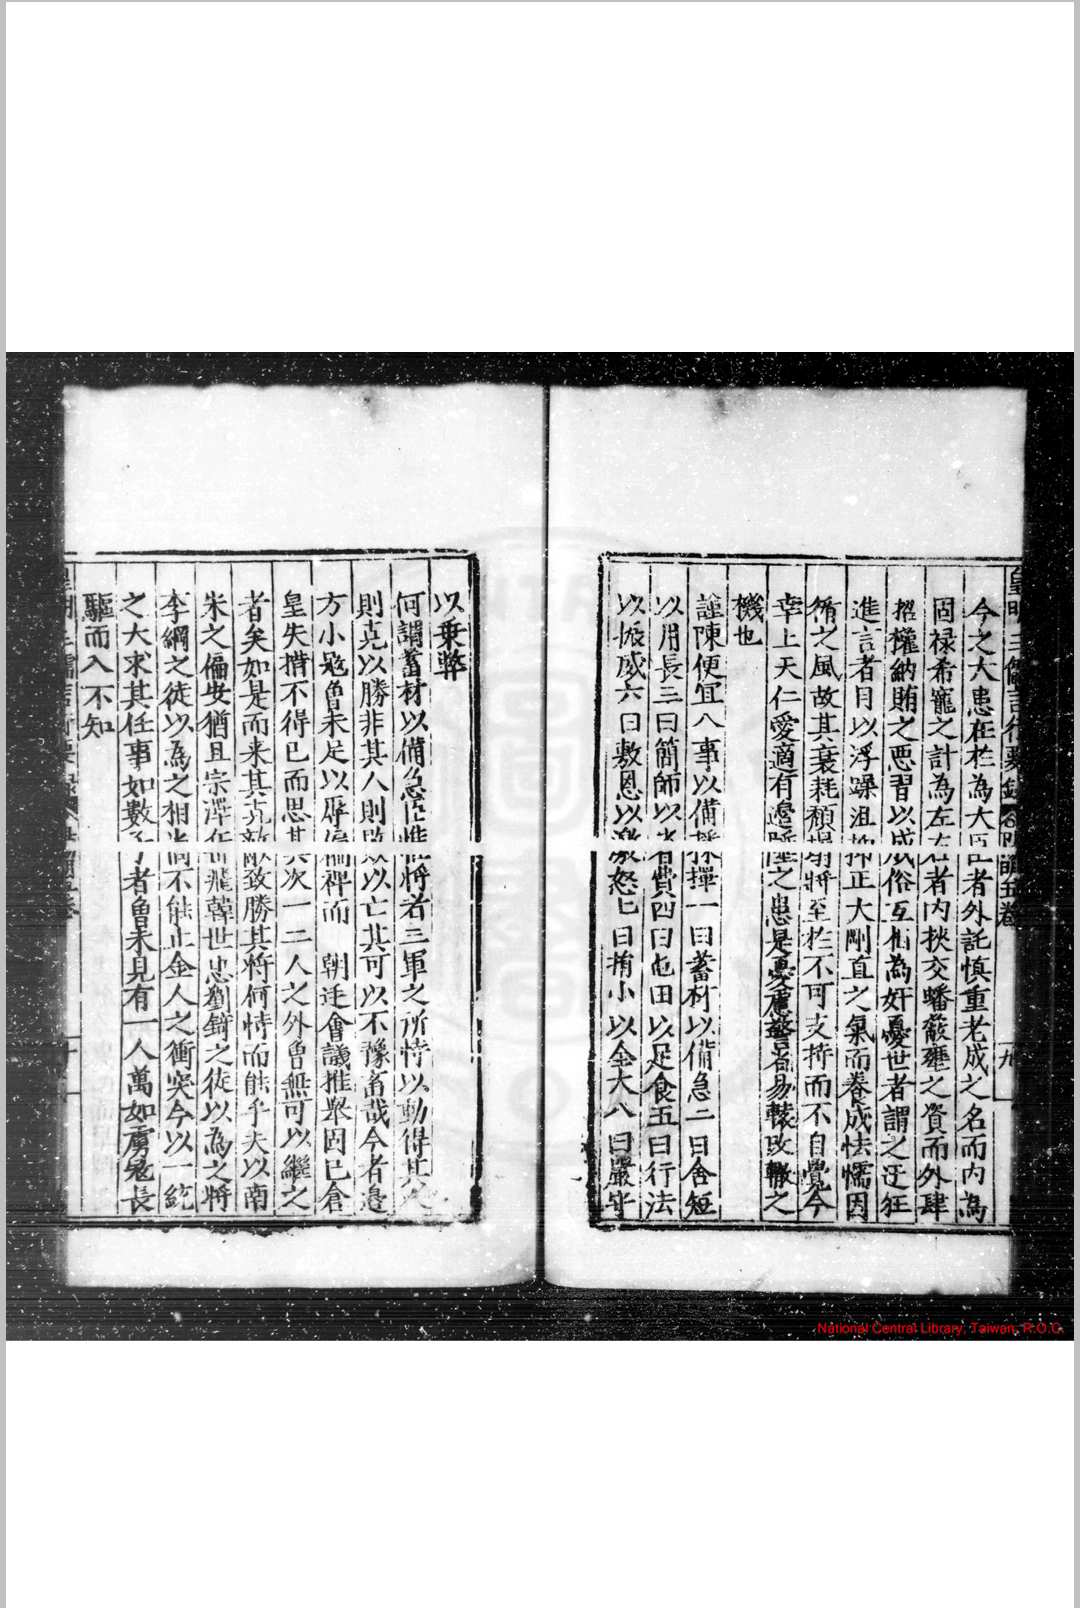 皇明三儒言行要錄 陽明五卷 九
今之大患在於為大臣者外託慎重老成之名而內為
固祿希寵之計為左右者內挾交蟠蔽壅之資而外肆
招權納賄之惡習以成風俗互相為奸憂世者謂之迂狂
進言者目以浮躁沮抑正大剛直之氣而養成怯懦因
循之風故其衰耗頹塌將至於不可支持而不自覺今
幸上天仁愛適有邊陲之患是憂慮警省易轅改轍之
機也
謹陳便宜八事以備採擇一曰蓄材以備急二曰舍短
以用長三曰簡師以省費四曰屯田以足食五曰行法
以振威六曰敷恩以激怒七曰捐小以全大八曰嚴守
以乘弊
何謂蓄材以備急臣惟將者三軍之所恃以動得其人
則克以勝非其人則敗以亡其可以不豫蓄哉今者邊
方小寇魯未足以辱偏裨而 朝廷會議推舉固已倉
皇失措不得已而思其次一二人之外魯無可以繼之
者矣如是而来其克敵致勝其將何恃而能乎夫以南
宋之偏安猶且宗澤岳飛韓世忠劉錡之徒以為之將
李綱之徒以為之相尚不能止金人之衝突今以一統
之大求其任事如數子者魯未見有一人萬如虜寇長
驅而入不知